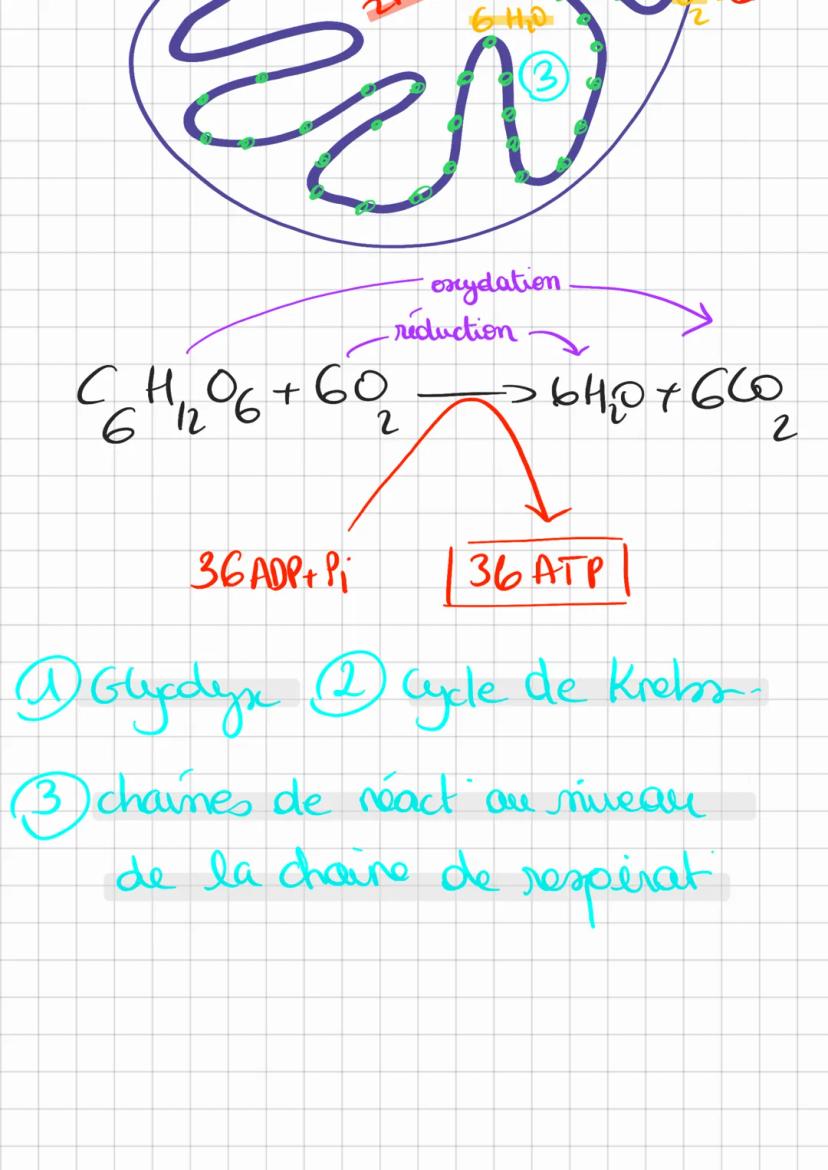 6 H₂O
2
3
oxydation
réduction
C₆H₁₂O₆ + 6O₂ → 6H₂O + 6CO₂
36 ADP + Pi 36 ATP
1 Glycolyse 2 Cycle de Krebs
3 chaînes de réact° au niveau
de la chaîne de respirat°